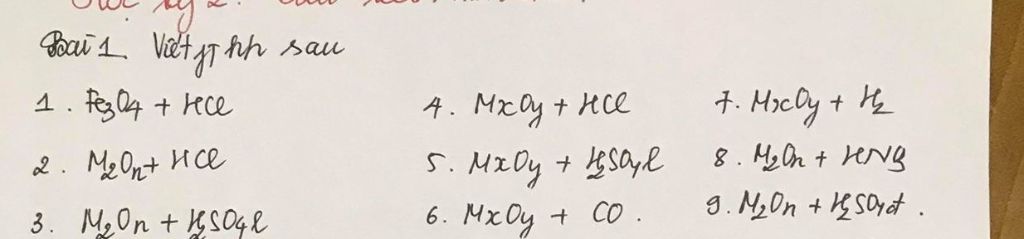 Bài 1. Viết PT hh sau
1. Fe3O4 + HCl
2. M2On + HCl
3. M2On + H2SO4l
4. MxOy + HCl
5. MxOy + H2SO4l
6. MxOy + CO.
7. MxOy + H2
8. M2On + HNO3
9. M2On + H2SO4đ.